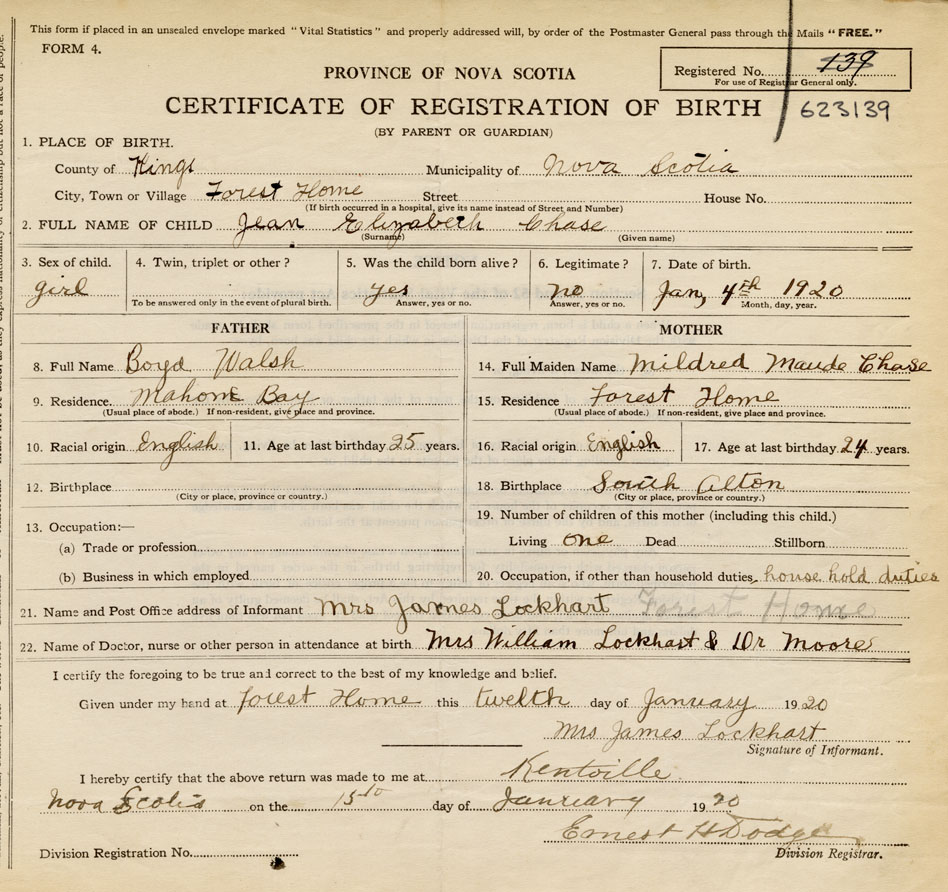 This form if placed in an unsealed envelope marked "Vital Statistics" and properly addressed will, by order of the Postmaster General pass through the Mails "FREE."
FORM 4.
Registered No. 139
For use of Registrar General only.
PROVINCE OF NOVA SCOTIA
CERTIFICATE OF REGISTRATION OF BIRTH 623139
(BY PARENT OR GUARDIAN)
1. PLACE OF BIRTH.
County of Kings Municipality of Nova Scotia
City, Town or Village Forest Home Street House No.
(If birth occurred in a hospital, give its name instead of Street and Number)
2. FULL NAME OF CHILD Jean Elizabeth Chase
(Surname) (Given name)
3. Sex of child. 4. Twin, triplet or other? 5. Was the child born alive? 6. Legitimate? 7. Date of birth.
girl yes no Jan, 4th 1920
To be answered only in the event of plural birth. Answer, yes or no. Answer, yes or no. Month, day, year.
FATHER MOTHER
8. Full Name Boyd Walsh 14. Full Maiden Name Mildred Maude Chase
9. Residence. Mahone Bay 15. Residence Forest Home
(Usual place of abode.) If non-resident, give place and province. (Usual place of abode.) If non-resident, give place and province.
10. Racial origin English 11. Age at last birthday 25 years. 16. Racial origin English 17. Age at last birthday 24 years.
12. Birthplace 18. Birthplace South Alton
(City or place, province or country.) (City or place, province or country.)
13. Occupation:— 19. Number of children of this mother (including this child.)
(a) Trade or profession Living one Dead Stillborn
(b) Business in which employed 20. Occupation, if other than household duties, house hold duties
21. Name and Post Office address of Informant Mrs James Lockhart Forest Home
22. Name of Doctor, nurse or other person in attendance at birth Mrs William Lockhart & Dr Moore
I certify the foregoing to be true and correct to the best of my knowledge and belief.
Given under my hand at Forest Home this twelth day of January 1920
Mrs James Lockhart
Signature of Informant.
I hereby certify that the above return was made to me at Kentville
Nova Scotia on the 15th day of January 1920
Ernest H Dodge
Division Registrar.
Division Registration No.